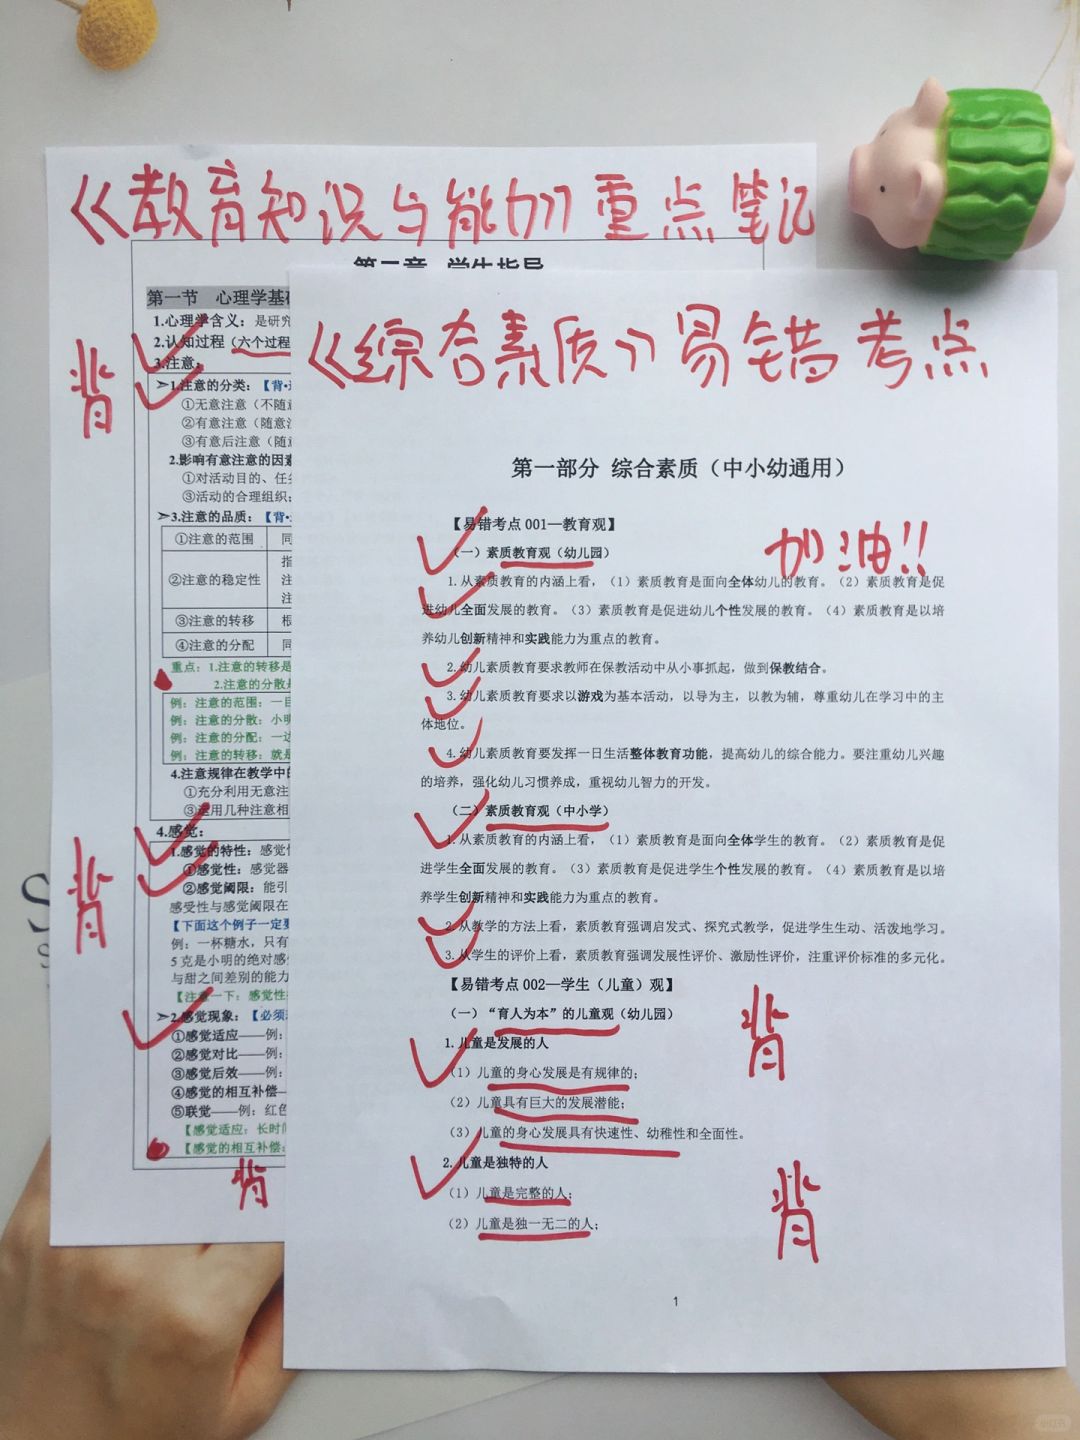 《教育知识与能力》重点笔记
第二章 学生指导
第一节 心理学基础
1.心理学含义：是研究
2.认知过程（六个过程
3.注意：
➢1.注意的分类：【背·
①无意注意（不随意
②有意注意（随意注
③有意后注意（随意
2.影响有意注意的因素
①对活动目的、任务
③活动的合理组织；
➢3.注意的品质：【背·
①注意的范围 同
②注意的稳定性 指
注
注
③注意的转移 根
④注意的分配 同
重点：1.注意的转移是
2.注意的分散是
例：注意的范围：一目
例：注意的分散：小明
例：注意的分配：一边
例：注意的转移：就是
4.注意规律在教学中的
①充分利用无意注
③运用几种注意相
4.感觉：
1.感觉的特性：感觉性
①感觉性：感觉器
②感觉阈限：能引
感受性与感觉阈限在
【下面这个例子一定要
例：一杯糖水，只有
5克是小明的绝对感
与甜之间差别的能力
【注意一下：感觉性
➢2.感觉现象：【必须
①感觉适应——例：
②感觉对比——例：
③感觉后效——例：
④感觉的相互补偿—
⑤联觉——例：红色
【感觉适应：长时间
【感觉的相互补偿：
背
背
背
《综合素质》易错考点
第一部分 综合素质（中小幼通用）
【易错考点001—教育观】
加油!!
（一）素质教育观（幼儿园）
1.从素质教育的内涵上看，（1）素质教育是面向全体幼儿的教育。（2）素质教育是促
进幼儿全面发展的教育。（3）素质教育是促进幼儿个性发展的教育。（4）素质教育是以培
养幼儿创新精神和实践能力为重点的教育。
2.幼儿素质教育要求教师在保教活动中从小事抓起，做到保教结合。
3.幼儿素质教育要求以游戏为基本活动，以导为主，以教为辅，尊重幼儿在学习中的主
体地位。
4.幼儿素质教育要发挥一日生活整体教育功能，提高幼儿的综合能力。要注重幼儿兴趣
的培养，强化幼儿习惯养成，重视幼儿智力的开发。
（二）素质教育观（中小学）
1.从素质教育的内涵上看，（1）素质教育是面向全体学生的教育。（2）素质教育是促
进学生全面发展的教育。（3）素质教育是促进学生个性发展的教育。（4）素质教育是以培
养学生创新精神和实践能力为重点的教育。
2.从教学的方法上看，素质教育强调启发式、探究式教学，促进学生生动、活泼地学习。
3.从学生的评价上看，素质教育强调发展性评价、激励性评价，注重评价标准的多元化。
【易错考点002—学生（儿童）观】
（一）“育人为本”的儿童观（幼儿园）
1.儿童是发展的人
背
（1）儿童的身心发展是有规律的；
（2）儿童具有巨大的发展潜能；
（3）儿童的身心发展具有快速性、幼稚性和全面性。
2.儿童是独特的人
（1）儿童是完整的人；
背
（2）儿童是独一无二的人；
1
小红书